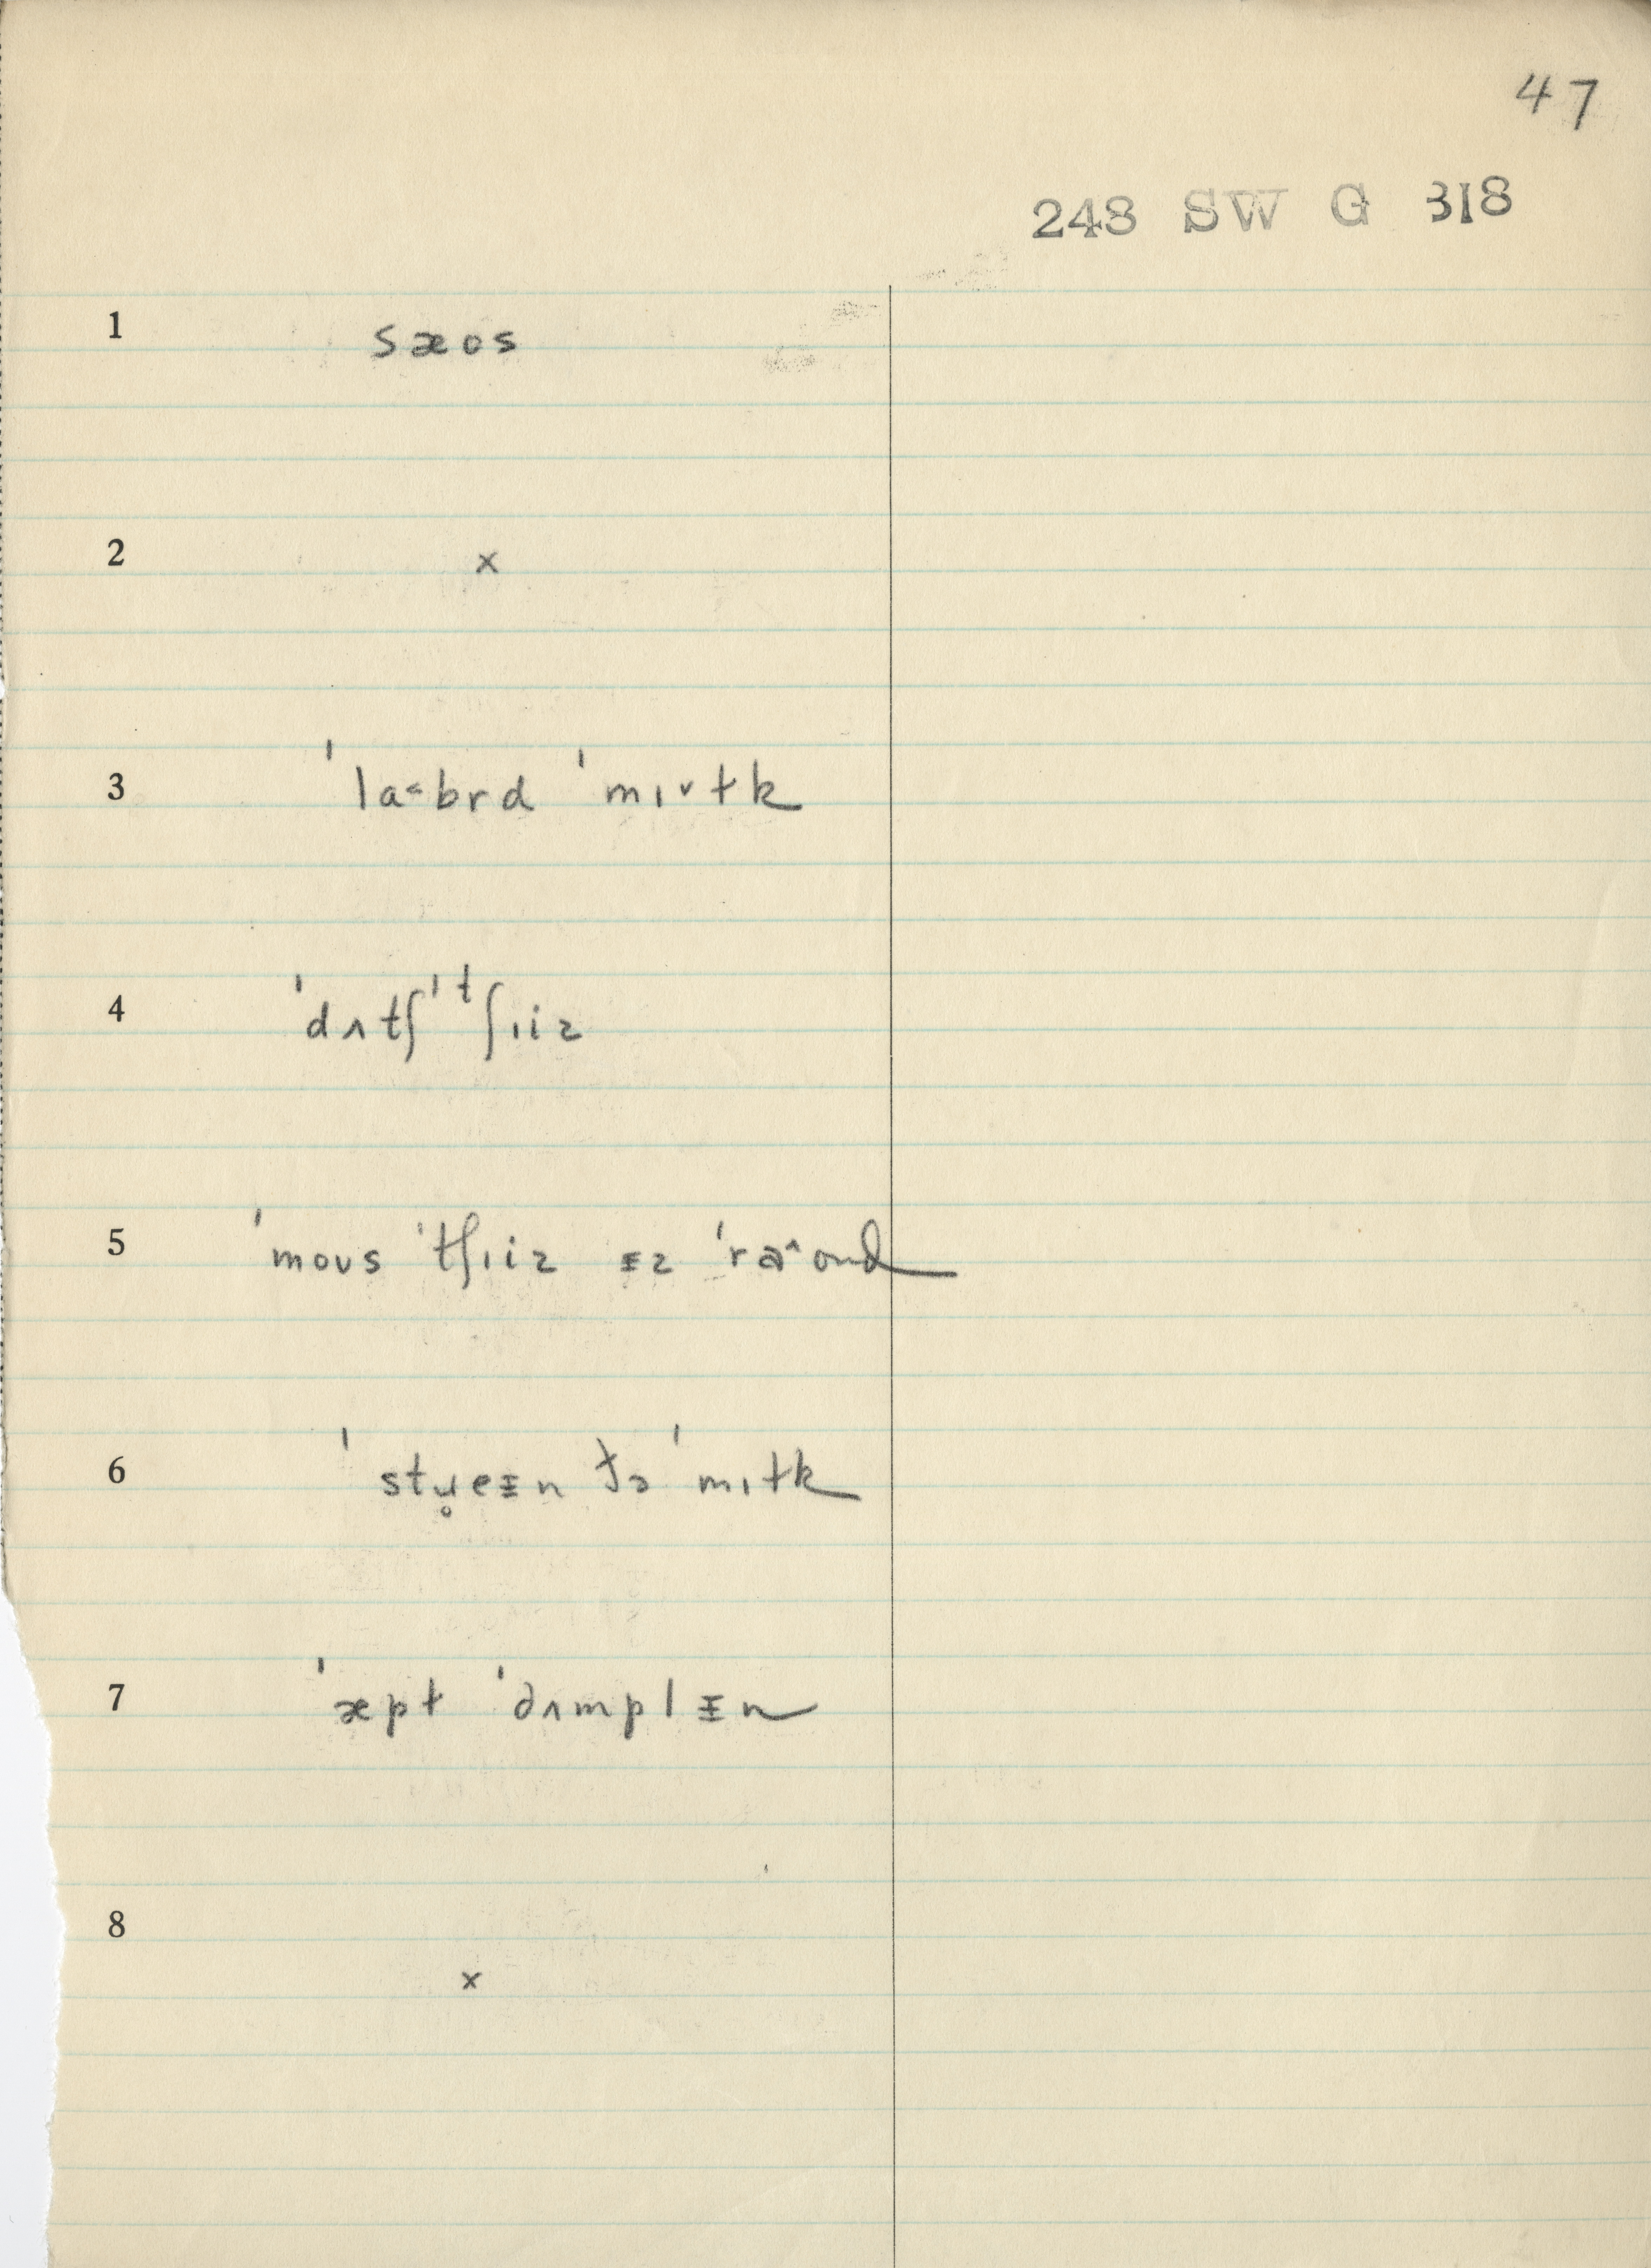 47
248 SW G 318
1 sæos
2 x
3 ˈla˂brd ˈmɪ˅ɫk
4 ˈdʌtʃ ˈtʃɪiz
5 ˈmoʊs ˈtʃɪiz ᵻz ˈra˄ond
6 ˈstɹ̥eᵻn ðə ˈmɪɫk
7 ˈæpɫ ˈdʌmplᵻn
8 x